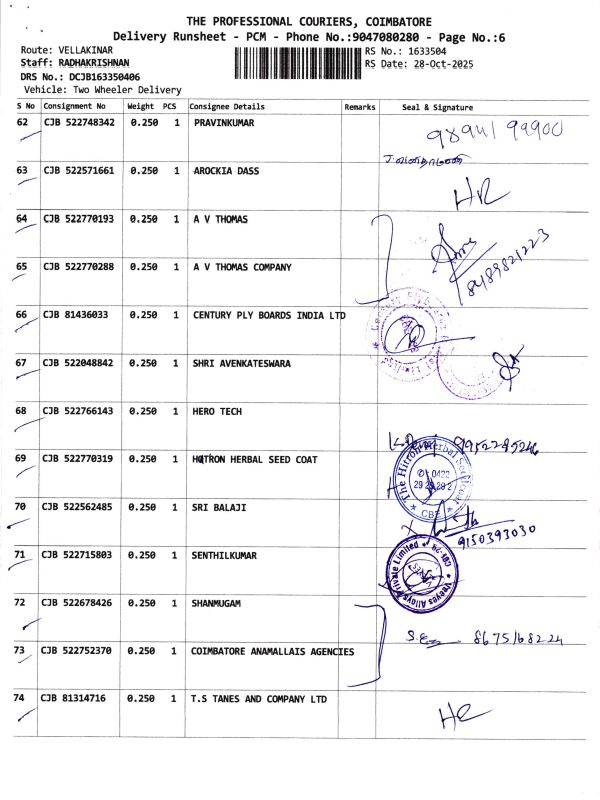 THE PROFESSIONAL COURIERS, COIMBATORE
Delivery Runsheet - PCM - Phone No.:9047080280 - Page No.:6
Route: VELLAKINAR RS No.: 1633504
Staff: RADHAKRISHNAN RS Date: 28-Oct-2025
DRS No.: DCJB163350406
Vehicle: Two Wheeler Delivery
S No Consignment No Weight PCS Consignee Details Remarks Seal & Signature
62 CJB 522748342 0.250 1 PRAVINKUMAR
63 CJB 522571661 0.250 1 AROCKIA DASS
64 CJB 522770193 0.250 1 A V THOMAS
65 CJB 522770288 0.250 1 A V THOMAS COMPANY
66 CJB 81436033 0.250 1 CENTURY PLY BOARDS INDIA LTD
67 CJB 522048842 0.250 1 SHRI AVENKATESWARA
68 CJB 522766143 0.250 1 HERO TECH
69 CJB 522770319 0.250 1 HITRON HERBAL SEED COAT
The Hitron Herbal Seedcoat
CBE
70 CJB 522562485 0.250 1 SRI BALAJI
9150393030
71 CJB 522715803 0.250 1 SENTHILKUMAR
Veeyes Alloys Private Limited
72 CJB 522678426 0.250 1 SHANMUGAM
8675168224
73 CJB 522752370 0.250 1 COIMBATORE ANAMALLAIS AGENCIES
74 CJB 81314716 0.250 1 T.S TANES AND COMPANY LTD